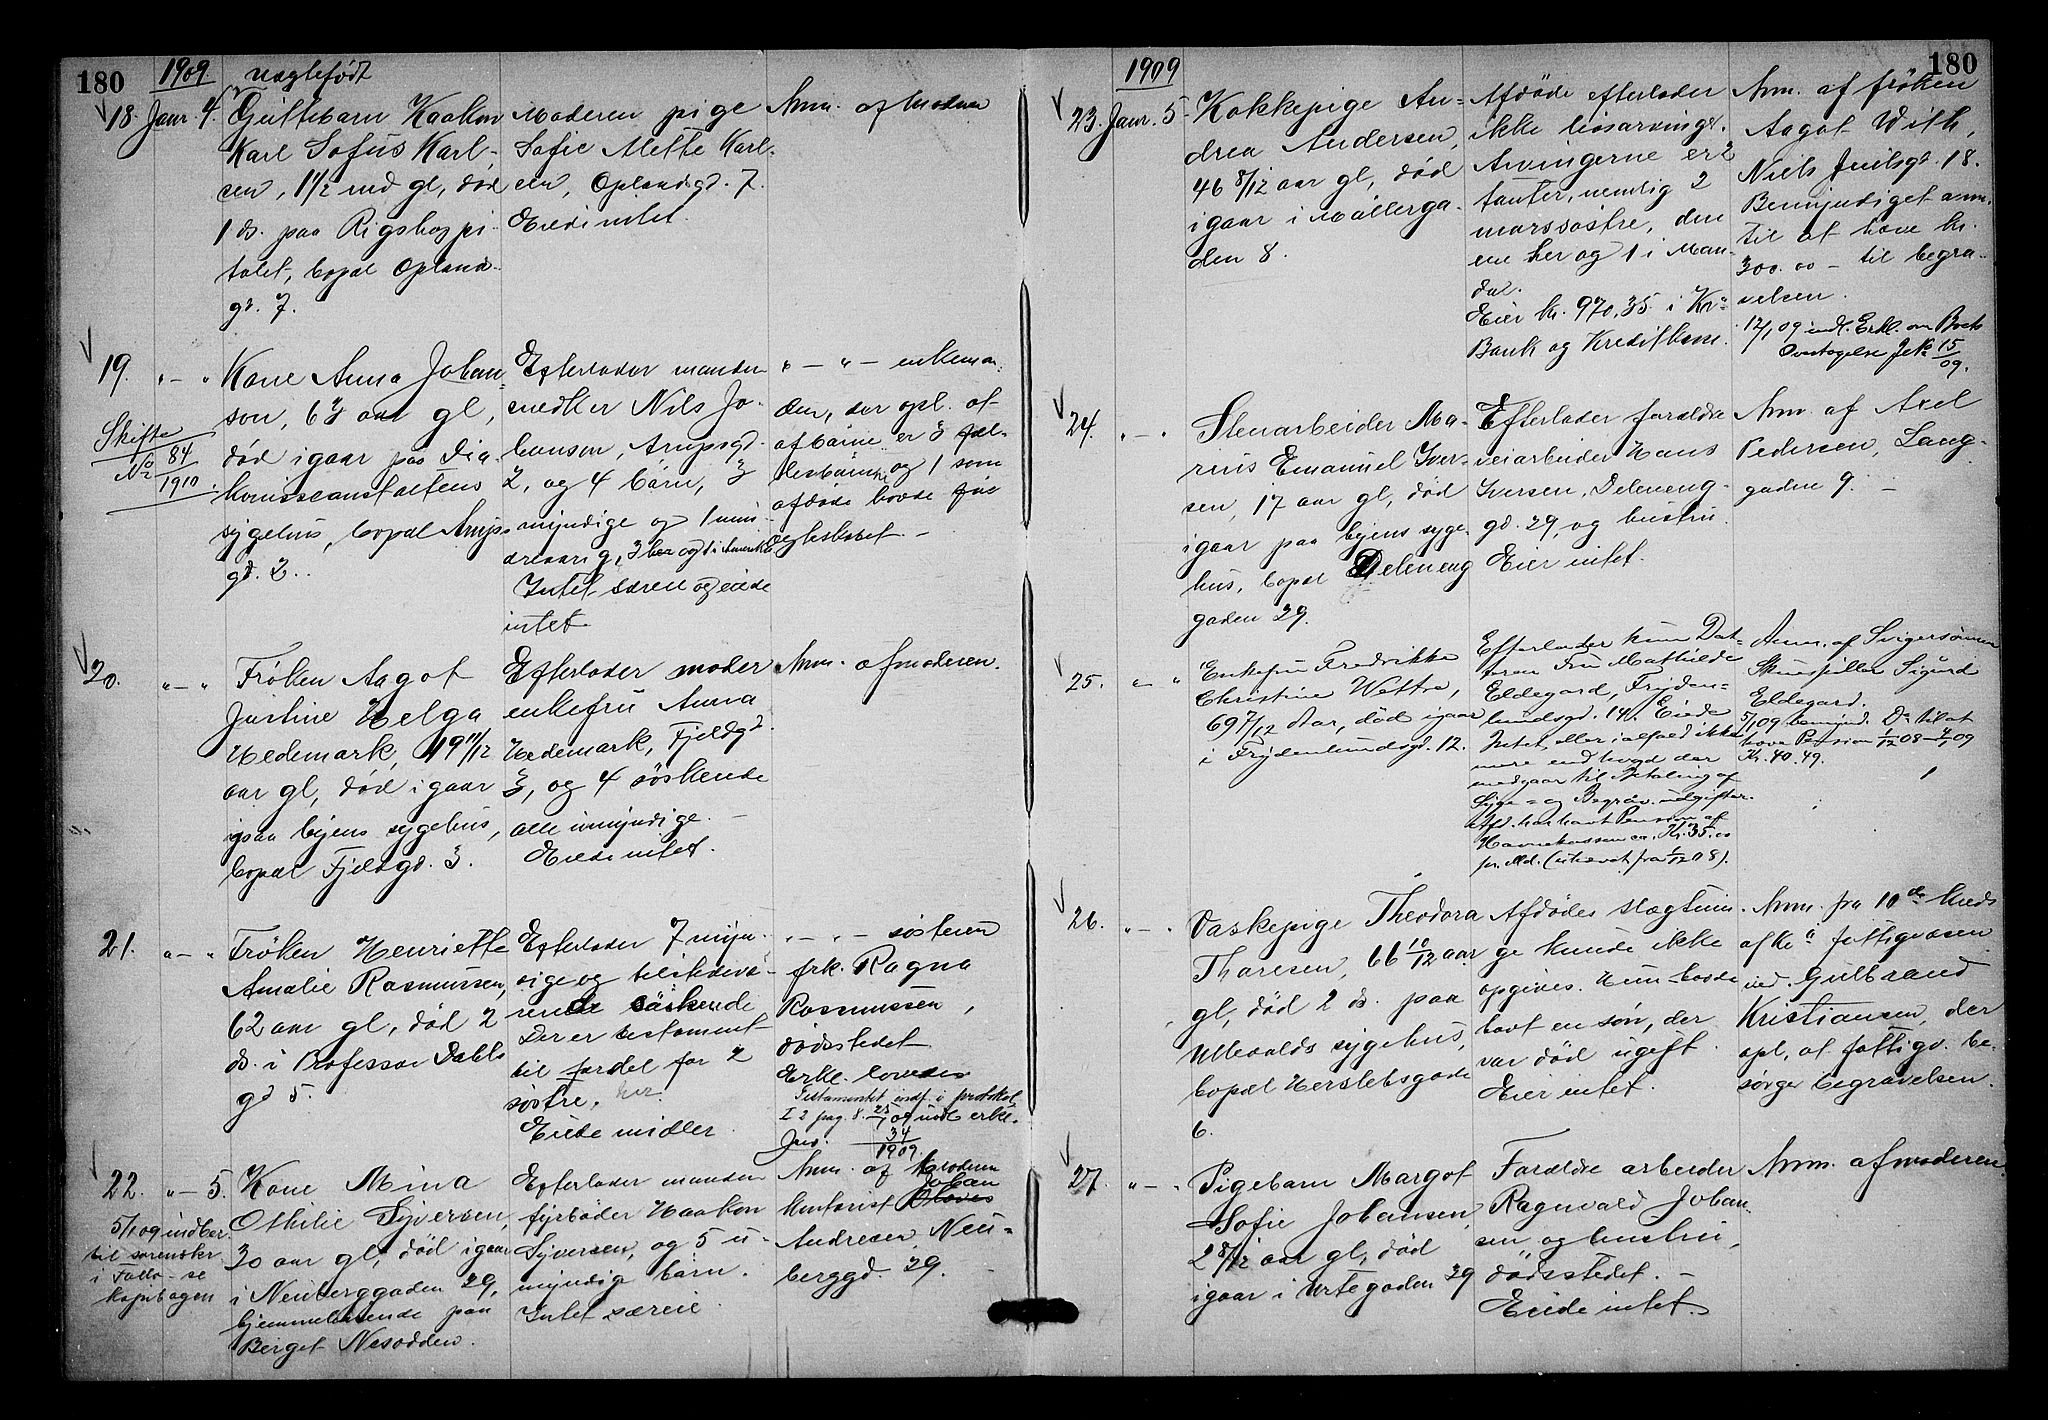 180
1909.
uægtefødt
18. Janr. 4. Guttebarn Haakon
Karl Sofus Karl-
sen, 1 1/2 md gl, død
1 ds. paa Rigshospi-
talet, bopæl Oplands-
gd. 7.
Moderen pige
Sofie Mette Karl-
sen, Oplandsgd. 7.
Eied intet.
Anm. af moderen
19. " — " Kone Anna Johan-
son, 63 aar gl,
død igaar paa Dia-
konisseanstaltens
sygehus, bopæl Arups
gd. 2.
Skifte
No 84
1910.
Efterlader manden
snedker Nils Jo-
hanson, Arupsgd.
2, og 4 børn, 3
myndige og 1 min-
dreaarig, 3 her og 1 i Amerika
Intet særeie og eiede
intet
" — " — enkeman-
den, der opl. at
af børnene er 3 fæl-
lesbørn og 1 som
afdøde havde før
egteskabet. —
20. " — " Frøken Aagot
Justine Helga
Hedemark, 19 11/12
aar gl, død igaar
paa byens sygehus,
bopæl Fjeldgd. 3.
Efterlader moder
enkefru Anna
Hedemark, Fjeldgd.
3, og 4 søskende
alle umyndige. —
Eiede intet.
Anm. af moderen.
21. " — " Frøken Henriette
Amalie Rasmussen,
62 aar gl, død 2
ds. i Professor Dahls
gd 5.
Efterlader 7 myn-
dige og tilstedevæ-
rende søskende
Der er testament
til fordel for 2
søstre. her.
Eiede midler.
" — " — søsteren
frk. Ragna
Rasmussen,
dødsstedet
Erkl. loves
Testamentet indf. i protokol
I 2 pag. 8. 23/1 09 indl. erkl.
Jnr. 34
1909.
22. " — 5. Kone Mina
Othilie Syversen,
30 aar gl, død igaar
i Neuberggaden 29,
hjemmehørende paa
Berget Nesodden.
5/1 09 indber.
til sorenskr
i Follo - se
kopibogen
Efterlader manden
fyrbøder Haakon
Syversen, og 5 u-
myndig børn.
Intet særeie.
Anm. af broderen
Johan
kontorist
Andresen, Neu-
berggd. 29. —
1909
180
23. Janr. 5 Kokkepige An-
drea Andersen,
46 8/12 aar gl, død
igaar i Møllerga-
den 8.
Afdøde efterlader
ikke livsarvinger.
Arvingerne er 2
tanter, nemlig 2
morssøstre, den
ene her og 1 i Man-
dal.
Eier kr. 970,35 i Kra
Bank og Kreditkasse.
Anm. af frøken
Aagot With,
Niels Juulsgd. 18.
Bemyndiget anm.
til at hæve kr.
300.00 — til begra-
velsen.
12/1 09 indl. Erkl. om Boets
Overtagelse Jnr 15
09.
24. " — " Stenarbeider Ma-
rius Emanuel Iver-
sen, 17 aar gl, død
igaar paa byens syge-
hus, bopæl Deleneng
gaden 29.
Efterlader forældre
veiarbeider Hans
Iversen, Deleneng-
gd. 29, og hustru.
Eier intet.
Anm. af Axel
Pedersen, Lang-
gaden 9. —
25. " — " Enkefru Fredrikke
Christine Wettre,
69 7/12 Aar, død igaar
i Frydenlundsgd. 12.
Efterlader kun Dat-
teren Fru Mathilde
Eldegard, Fryden-
lundsgd. 14. Eiede
Intet, eller ialfald ikke
mere end hvad der
medgaar til Betaling af
Syge- og Begrav. udgifter.
Afd. har havt Pension af
Havnekassen ca. Kr. 35.00
pr. Md. (uhævet fra 1/12 08).
Anm. af Svigersønnen
Skuespiller Sigurd
Eldegard.
5/1 09 bemynd. Do til at
hæve Pension 1/12 08 – 4/1 09
Kr. 40.49.
26. " — " Vaskepige Theodora
Thoresen, 66 10/12 aar
gl, død 2 ds. paa
Ullevolds sygehus,
bopæl Herslebsgade
6.
Afdødes slægtnin-
ge kunde ikke
opgives. Hun havde
havt en søn, der
var død ugift.
Eier intet.
Anm. fra 10de kreds
af Kra fattigvæsen
ved Gulbrand
Kristiansen, der
opl, at fattigv. be-
sørger begravelsen.
27. " — " Pigebarn Margot
Sofie Johansen,
2 8/12 aar gl, død
igaar i Urtegaden 39
Forældre arbeider
Ragnvald Johan-
sen og hustru,
dødsstedet. —
Eiede intet.
Anm. af moderen.